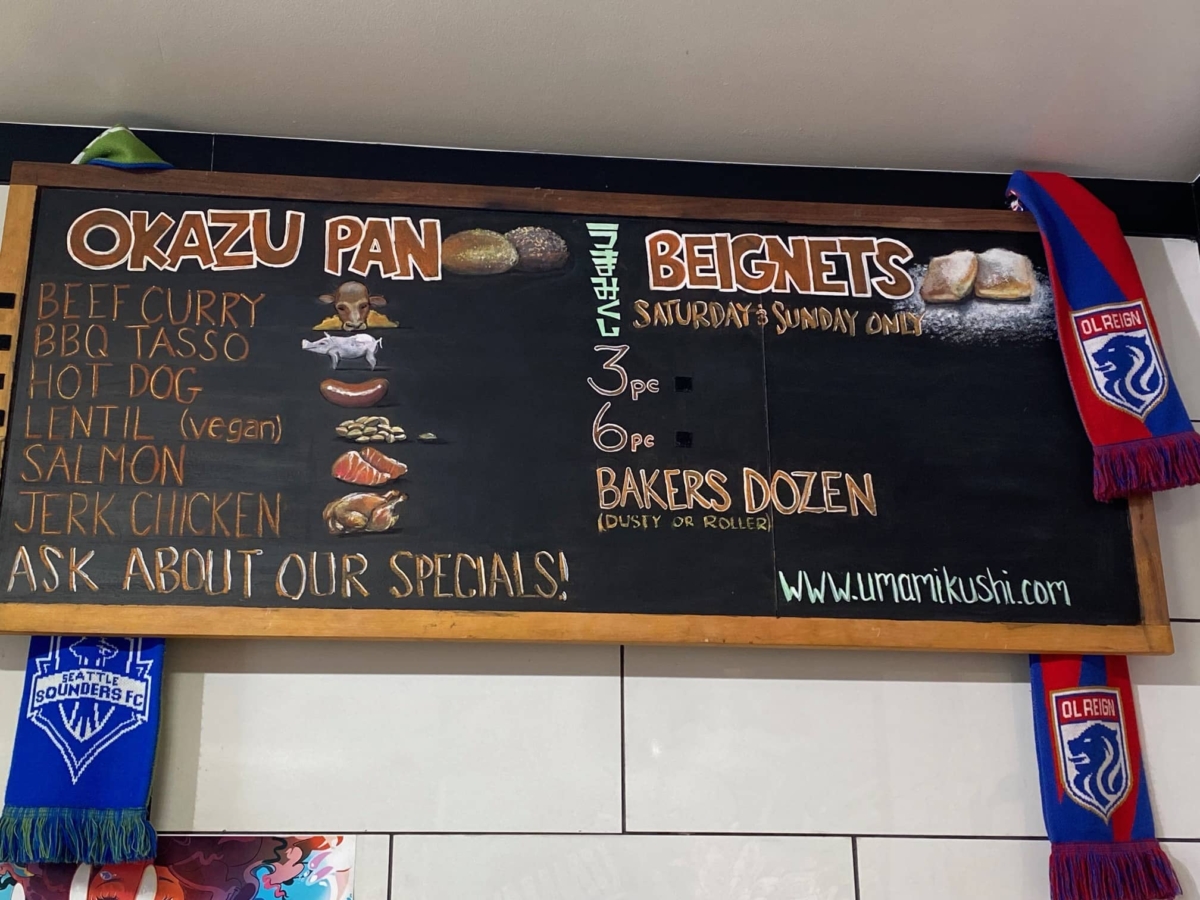 OKAZU PAN
BEEF CURRY
BBQ TASSO
HOT DOG
LENTIL (vegan)
SALMON
JERK CHICKEN
ASK ABOUT OUR SPECIALS!
うまみくし
BEIGNETS
SATURDAY & SUNDAY ONLY
3pc
6pc
BAKERS DOZEN
(DUSTY OR ROLLER)
www.umamikushi.com
OL REIGN
SEATTLE
SOUNDERS FC
OL REIGN